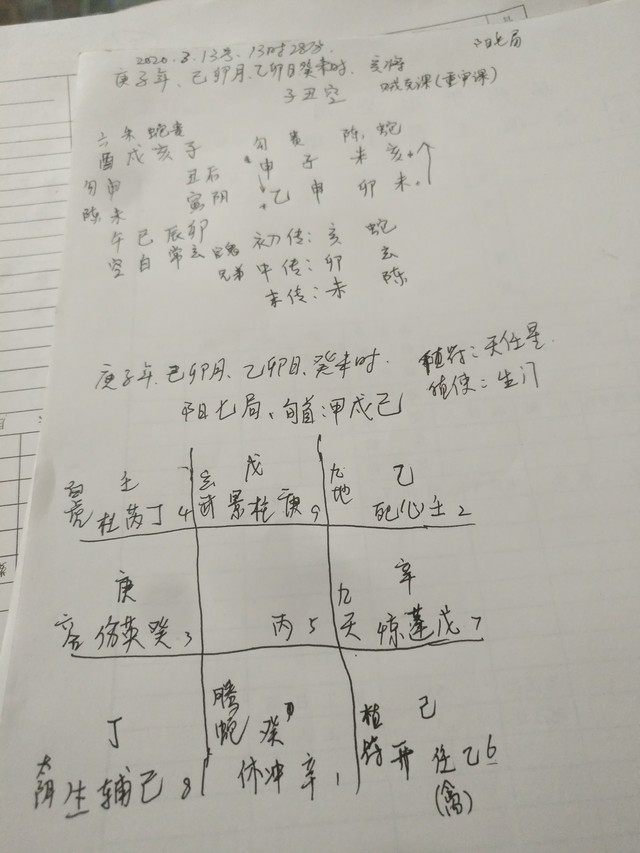 2020.3.13号、13时28分. 阳七局
庚子年、己卯月、乙卯日癸未时. 亥将
子丑空 贼克课(重审课)
六 朱 蛇 贵 勾 贵 陈 蛇
酉 戌 亥 子 申 子 未 亥
勾申 丑后 乙 申 卯 未
陈未 寅阴
午 巳 辰 卯 初传: 亥 蛇
空 白 常 玄 兄弟 中传: 卯 玄
末传: 未 陈
庚子年、己卯月、乙卯日、癸未时. 值符: 天任星
阳七局、旬首:甲戌己 值使: 生门
壬 玄武 戊 九地 乙
白虎 杜芮丁4 景柱庚9 死心壬2
庚 九天 辛
六合 伤英癸3 丙5 惊蓬戊7
丁 腾蛇 癸 值符 己
太阴 生辅己8 休冲辛1 开任乙6
(禽)